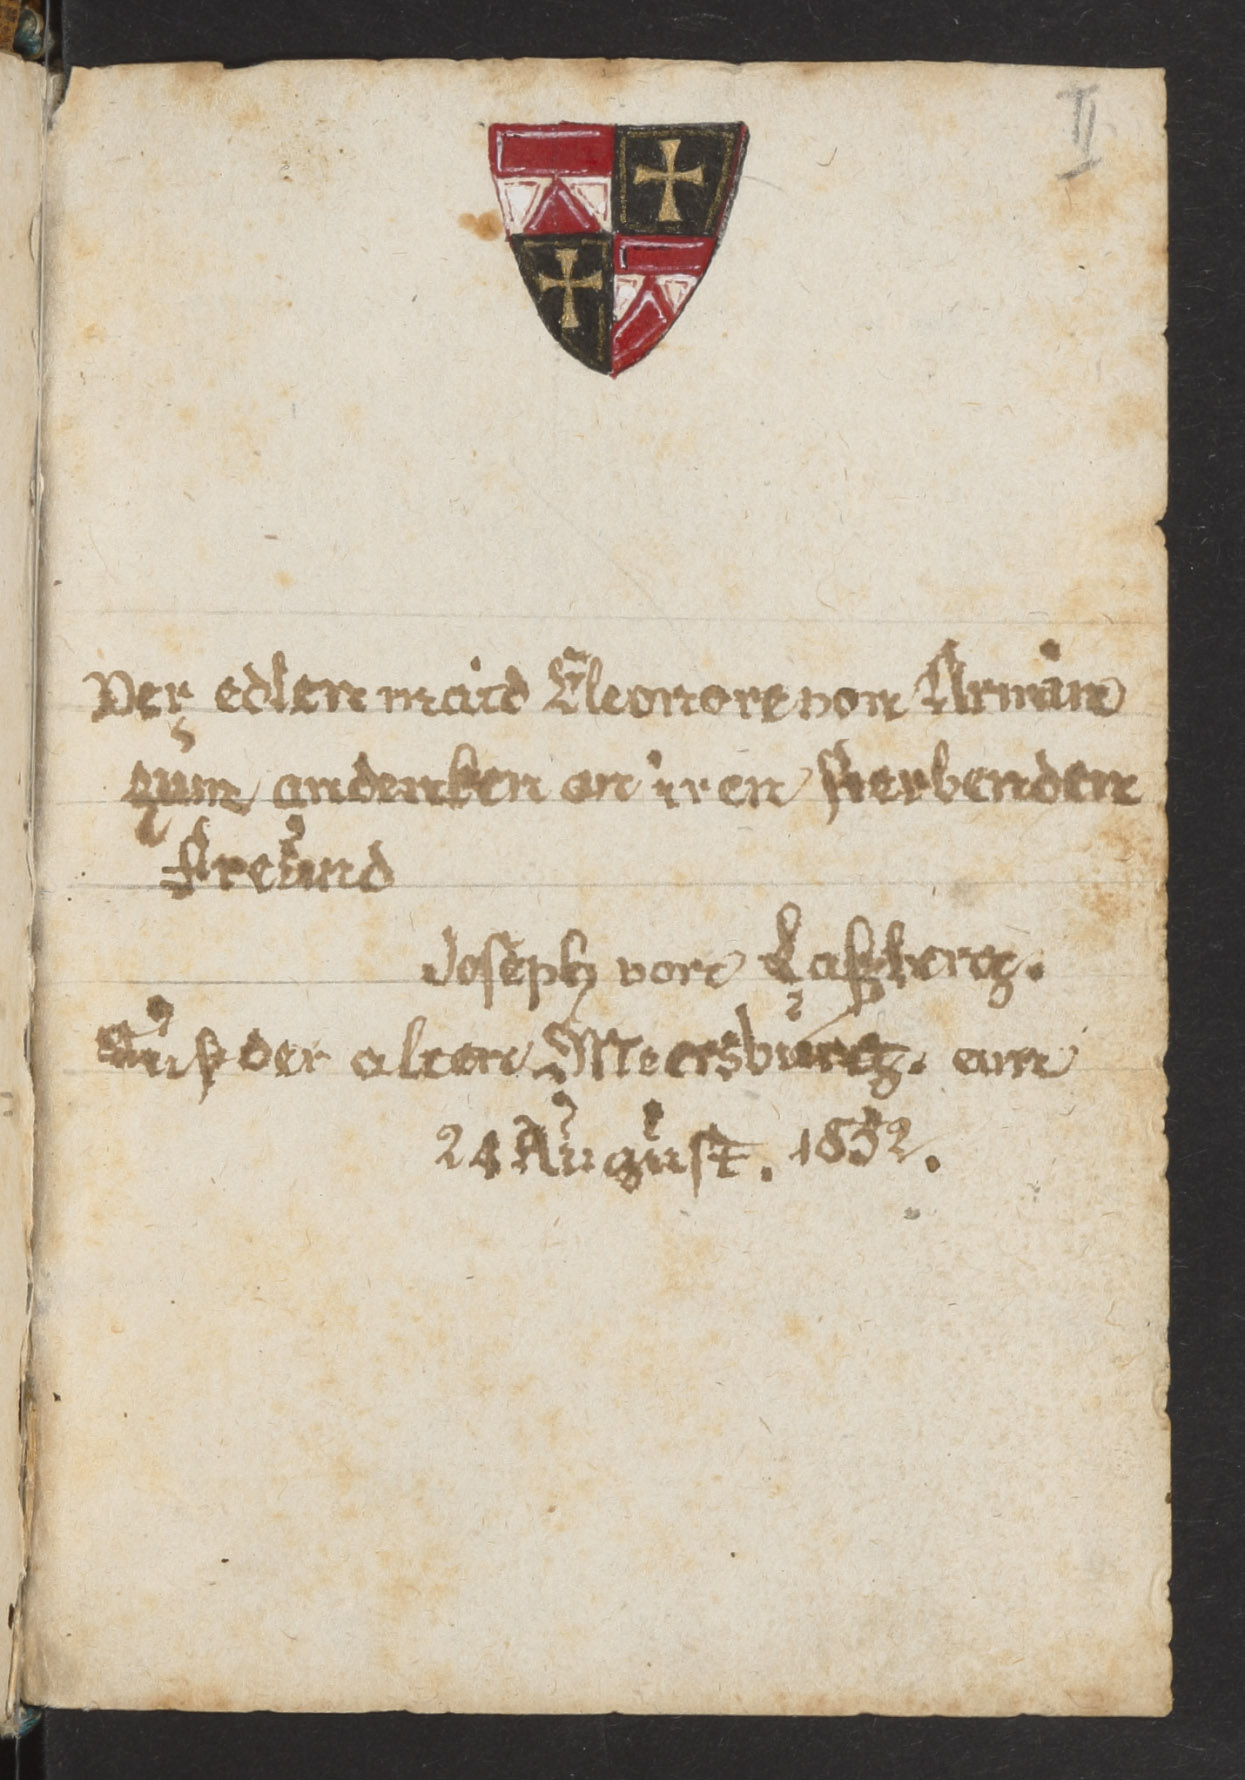 II
Der edlen maid Eleonore von Arnim
zum andenken an iren sterbenden
freund
Joseph von Laßberg.
Auf der alten Meersburg. am
24 August. 1852.